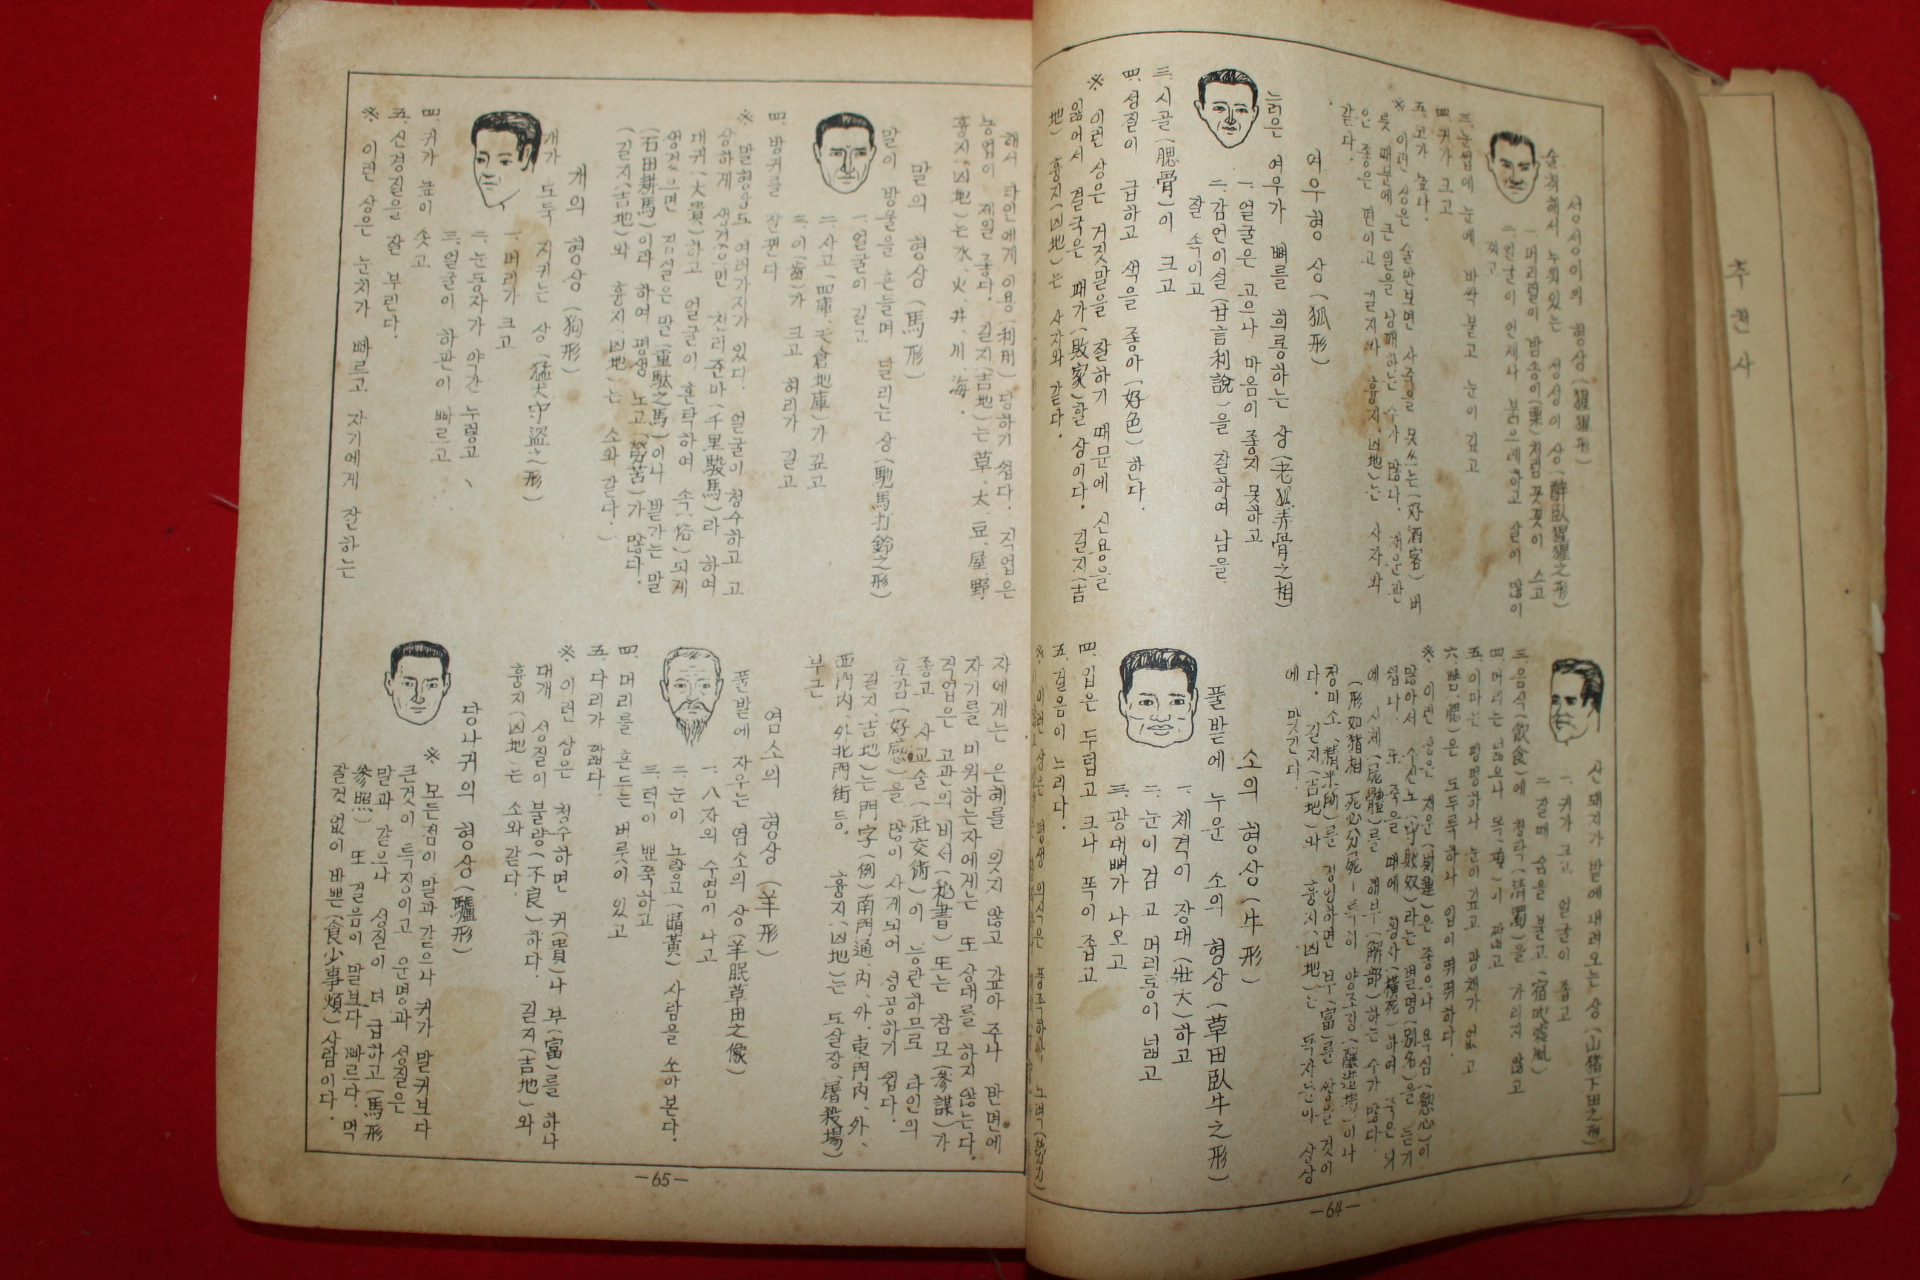 성성이의 형상(猩猩形)
술취해서 누워있는 성성이 상(醉臥猩猩之形)
一. 머리털이 밤송이(栗)처럼 꼿꼿이 스고
二. 얼굴이 언제나 붉으레하고 살이 많이
쪘고
三. 눈썹에 눈에 바싹 붙고 눈이 깊고
四. 귀가 크고
五. 코가 높다.
※ 이런 상은 술만보면 사죽을 못쓰는(好酒客) 버
릇 때문에 큰 일을 낭패하는 수가 많다. 재운관
은 좋은 편이고 길지와 흉지(凶地)는 사자와
같다.
여우형상(狐形)
늙은 여우가 뼈를 희롱하는 상(老狐弄骨之相)
一. 얼굴은 고으나 마음이 좋지 못하고
二. 감언이설(甘言利說)을 잘하여 남을
잘 속이고
三. 시골(腮骨)이 크고
四. 성질이 급하고 색을 좋아(好色)한다.
※ 이런 상은 거짓말을 잘하기 때문에 신용을
잃어서 결국은 패가(敗家)할 상이다. 길지(吉
地) 흉지(凶地)는 사자와 같다.
산돼지가 밭에 내려오는 상(山猪下田之形)
一. 귀가 크고 얼굴이 좁고
二. 잘때 숨을 불고
三. 음식(飮食)에 청탁(淸濁)을 가리지 않고
四. 머리는 넓으나 목(項)이 짧고
五. 이마는 평평하나 눈이 깊고 광채가 없고
六. 은 도두룩하나 입이 뛰뛰하다.
※ 이런 상은 재운(財運)은 좋으나 욕심(慾心)이
많아서 수전노(守財奴)라는 별명(別名)을 듣기
쉽다. 또 죽을 때에 횡사(橫死)하여 죽은 뒤
에 시체(屍體)를 해부(解部)하는 수가 많다.
(形如猪相 死必分死―특히 양조장(釀造場)이나
정미소(精米所)를 경영하면 부(富)를 쌓을 것이
다. 길지(吉地)와 흉지(凶地)는 독자들의 상상
에 맞긴다.
소의 형상(牛形)
풀밭에 누운 소의 형상(草田臥牛之形)
一. 체격이 장대(壯大)하고
二. 눈이 검고 머리통이 넓고
三. 광대뼈가 나오고
四. 입은 두렵고 크나 폭이 좁고
五. 걸음이 느리다.
※ 이런 상은 평생 의식은 풍족하나 노력(努力)
-64-
해서 타인에게 이용(利用)당하기 쉽다. 직업은
농업이 제일 좋다. 길지(吉地)는 草、太、豆、屋、野
흉지(凶地)는 水、火、井、川、海.
말의 형상(馬形)
말이 방울을 흔들며 달리는 상(馳馬打鈴之形)
一. 얼굴이 길고
二. 사고(四庫、天倉地庫)가 깊고
三. 이(齒)가 크고 허리가 길고
四. 방귀를 잘뀐다
※ 말형용도 여러가지가 있다. 얼굴이 청수하고 고
상하게 생겼으면 천리준마(千里駿馬)라 하여
대귀(大貴)하고 얼굴이 혼탁하여 속(俗)되게
생겼으면 짐실은 말(重駄之馬)이나 밭가는 말
(石田耕馬)이라 하여 평생 노고(勞苦)가 많다.
(길지(吉地)와 흉지(凶地)는 소와 같다.)
개의 형상(狗形)
개가 도둑 지키는 상(猛犬守盜之形)
一. 머리가 크고
二. 눈동자가 약간 누렇고、
三. 얼굴이 하관이 빠르고
四. 귀가 높이 솟고
五. 신경질을 잘 부린다.
※ 이런 상은 눈치가 빠르고 자기에게 잘하는
자에게는 은혜를 잊지 않고 갚아 주나 반면에
자기를 미워하는자에게는 또 상대를 하지 않는다.
직업은 고관의 비서(秘書) 또는 참모(參謀)가
좋고 사교술(社交術)이 능란하므로 타인의
호감(好感)을 많이 사게되어 성공하기 쉽다.
길지(吉地)는 門字(例)南門通、內、外、東門內、外、
西門內、外北門街등. 흉지(凶地)는 도살장(屠殺場)
부근
염소의 형상(羊形)
풀밭에 자우는 염소의 상(羊眠草田之像)
一. 八자의 수염이 나고
二. 눈이 노랗고(睛黃) 사람을 쏘아본다.
三. 턱이 뾰쭉하고
四. 머리를 흔드는 버릇이 있고
五. 다리가 짧다.
※ 이런 상은 청수하면 귀(貴)나 부(富)를 하나
대개 성질이 불량(不良)하다. 길지(吉地)와
흉지(凶地)는 소와 같다.
당나귀의 형상(驢形)
※ 모든점이 말과 같으나 귀가 말귀보다
큰것이 특징이고 운명과 성질은
말과 같으나 성질이 더 급하고(馬形
參照) 또 걸음이 말보다 빠르다. 먹
잘것 없이 바쁜(食少事煩)사람이다.
-65-
추천사